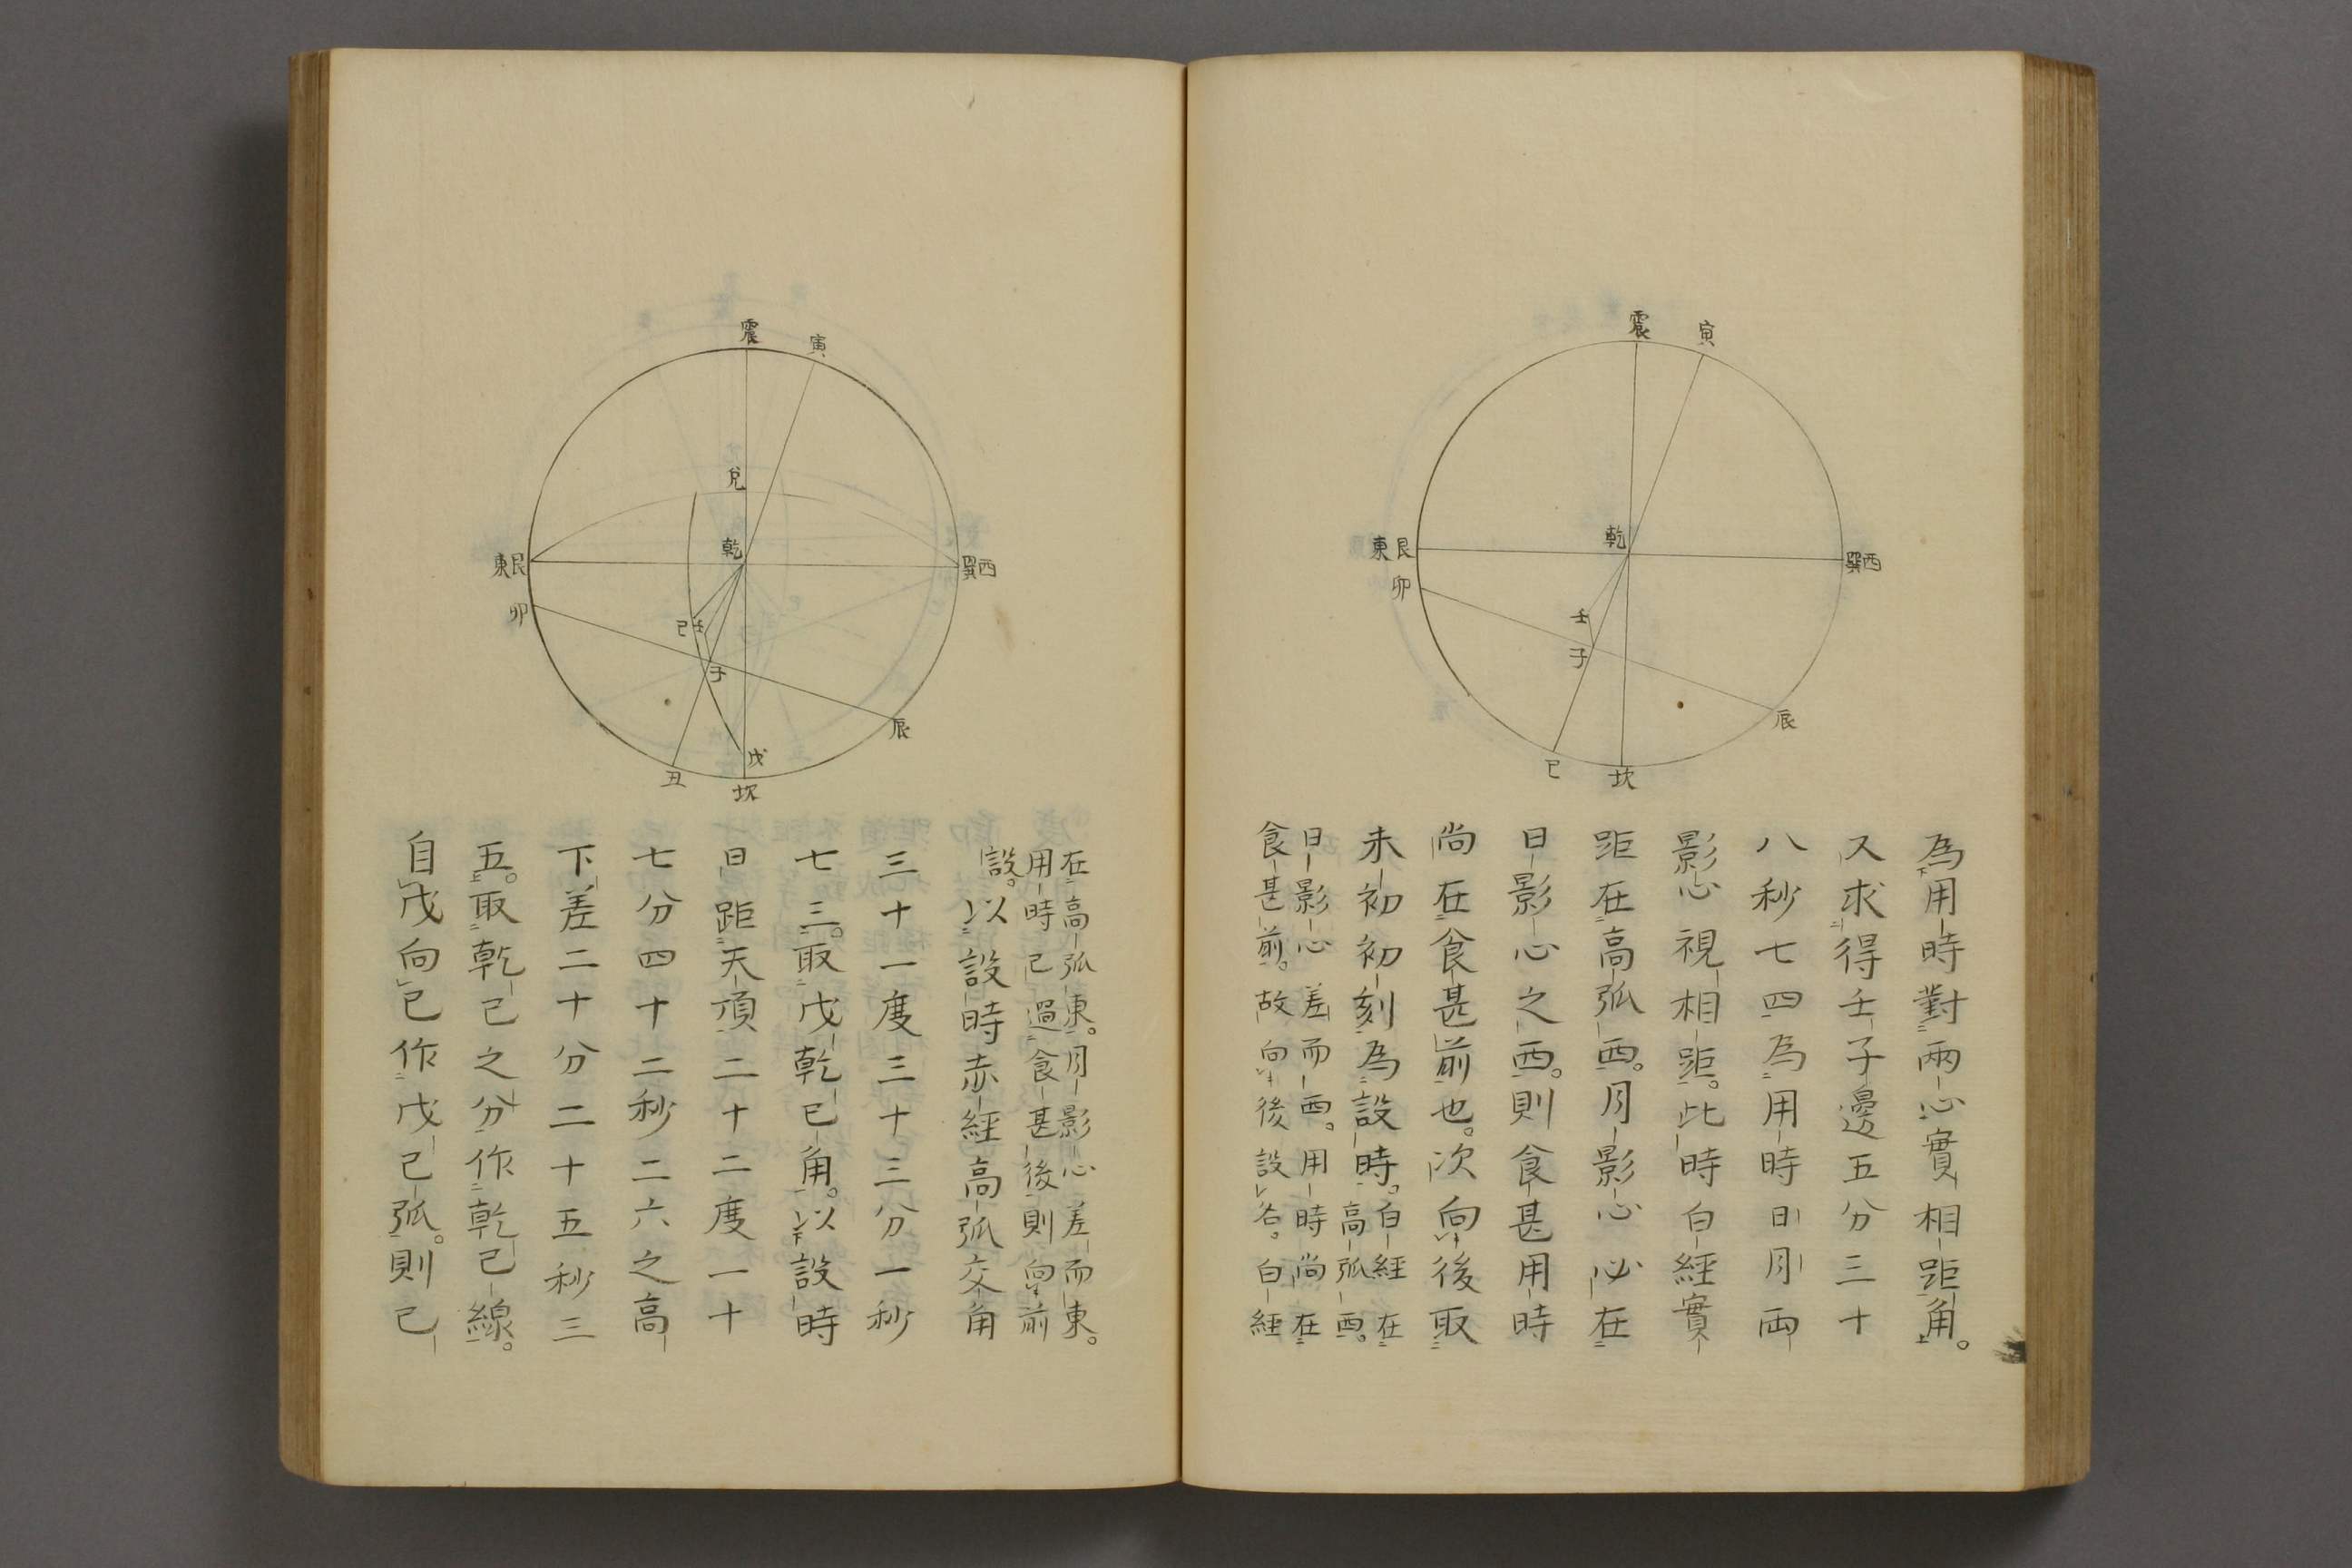 震
寅
乾
東艮
巽西
卯
壬
子
辰
巳
坎
為用時對兩心實相距角。
又求得壬子邊五分三十
八秒七四為用時日月兩
影心視相距。此時白經實
距在高弧西。月影心必在
日影心之西。則食甚用時
尚在食甚前也。次向後取
未初初刻為設時。白經在
高弧西。
日影心差而西。用時尚在
食甚前。故向後設。若白經
震
寅
兌
乾
東艮
巽西
卯
己
壬
子
辰
戊
丑
坎
在高弧東。月影心差而東。
用時已過食甚後則向前
設。以設時赤經高弧交角
三十一度三十三分一秒
七三。取戊乾己角。以設時
日距天頂二十二度一十
七分四十二秒二六之高
下差二十分二十五秒三
五。取乾己之分作乾己線。
自戊向己作戊己弧。則己